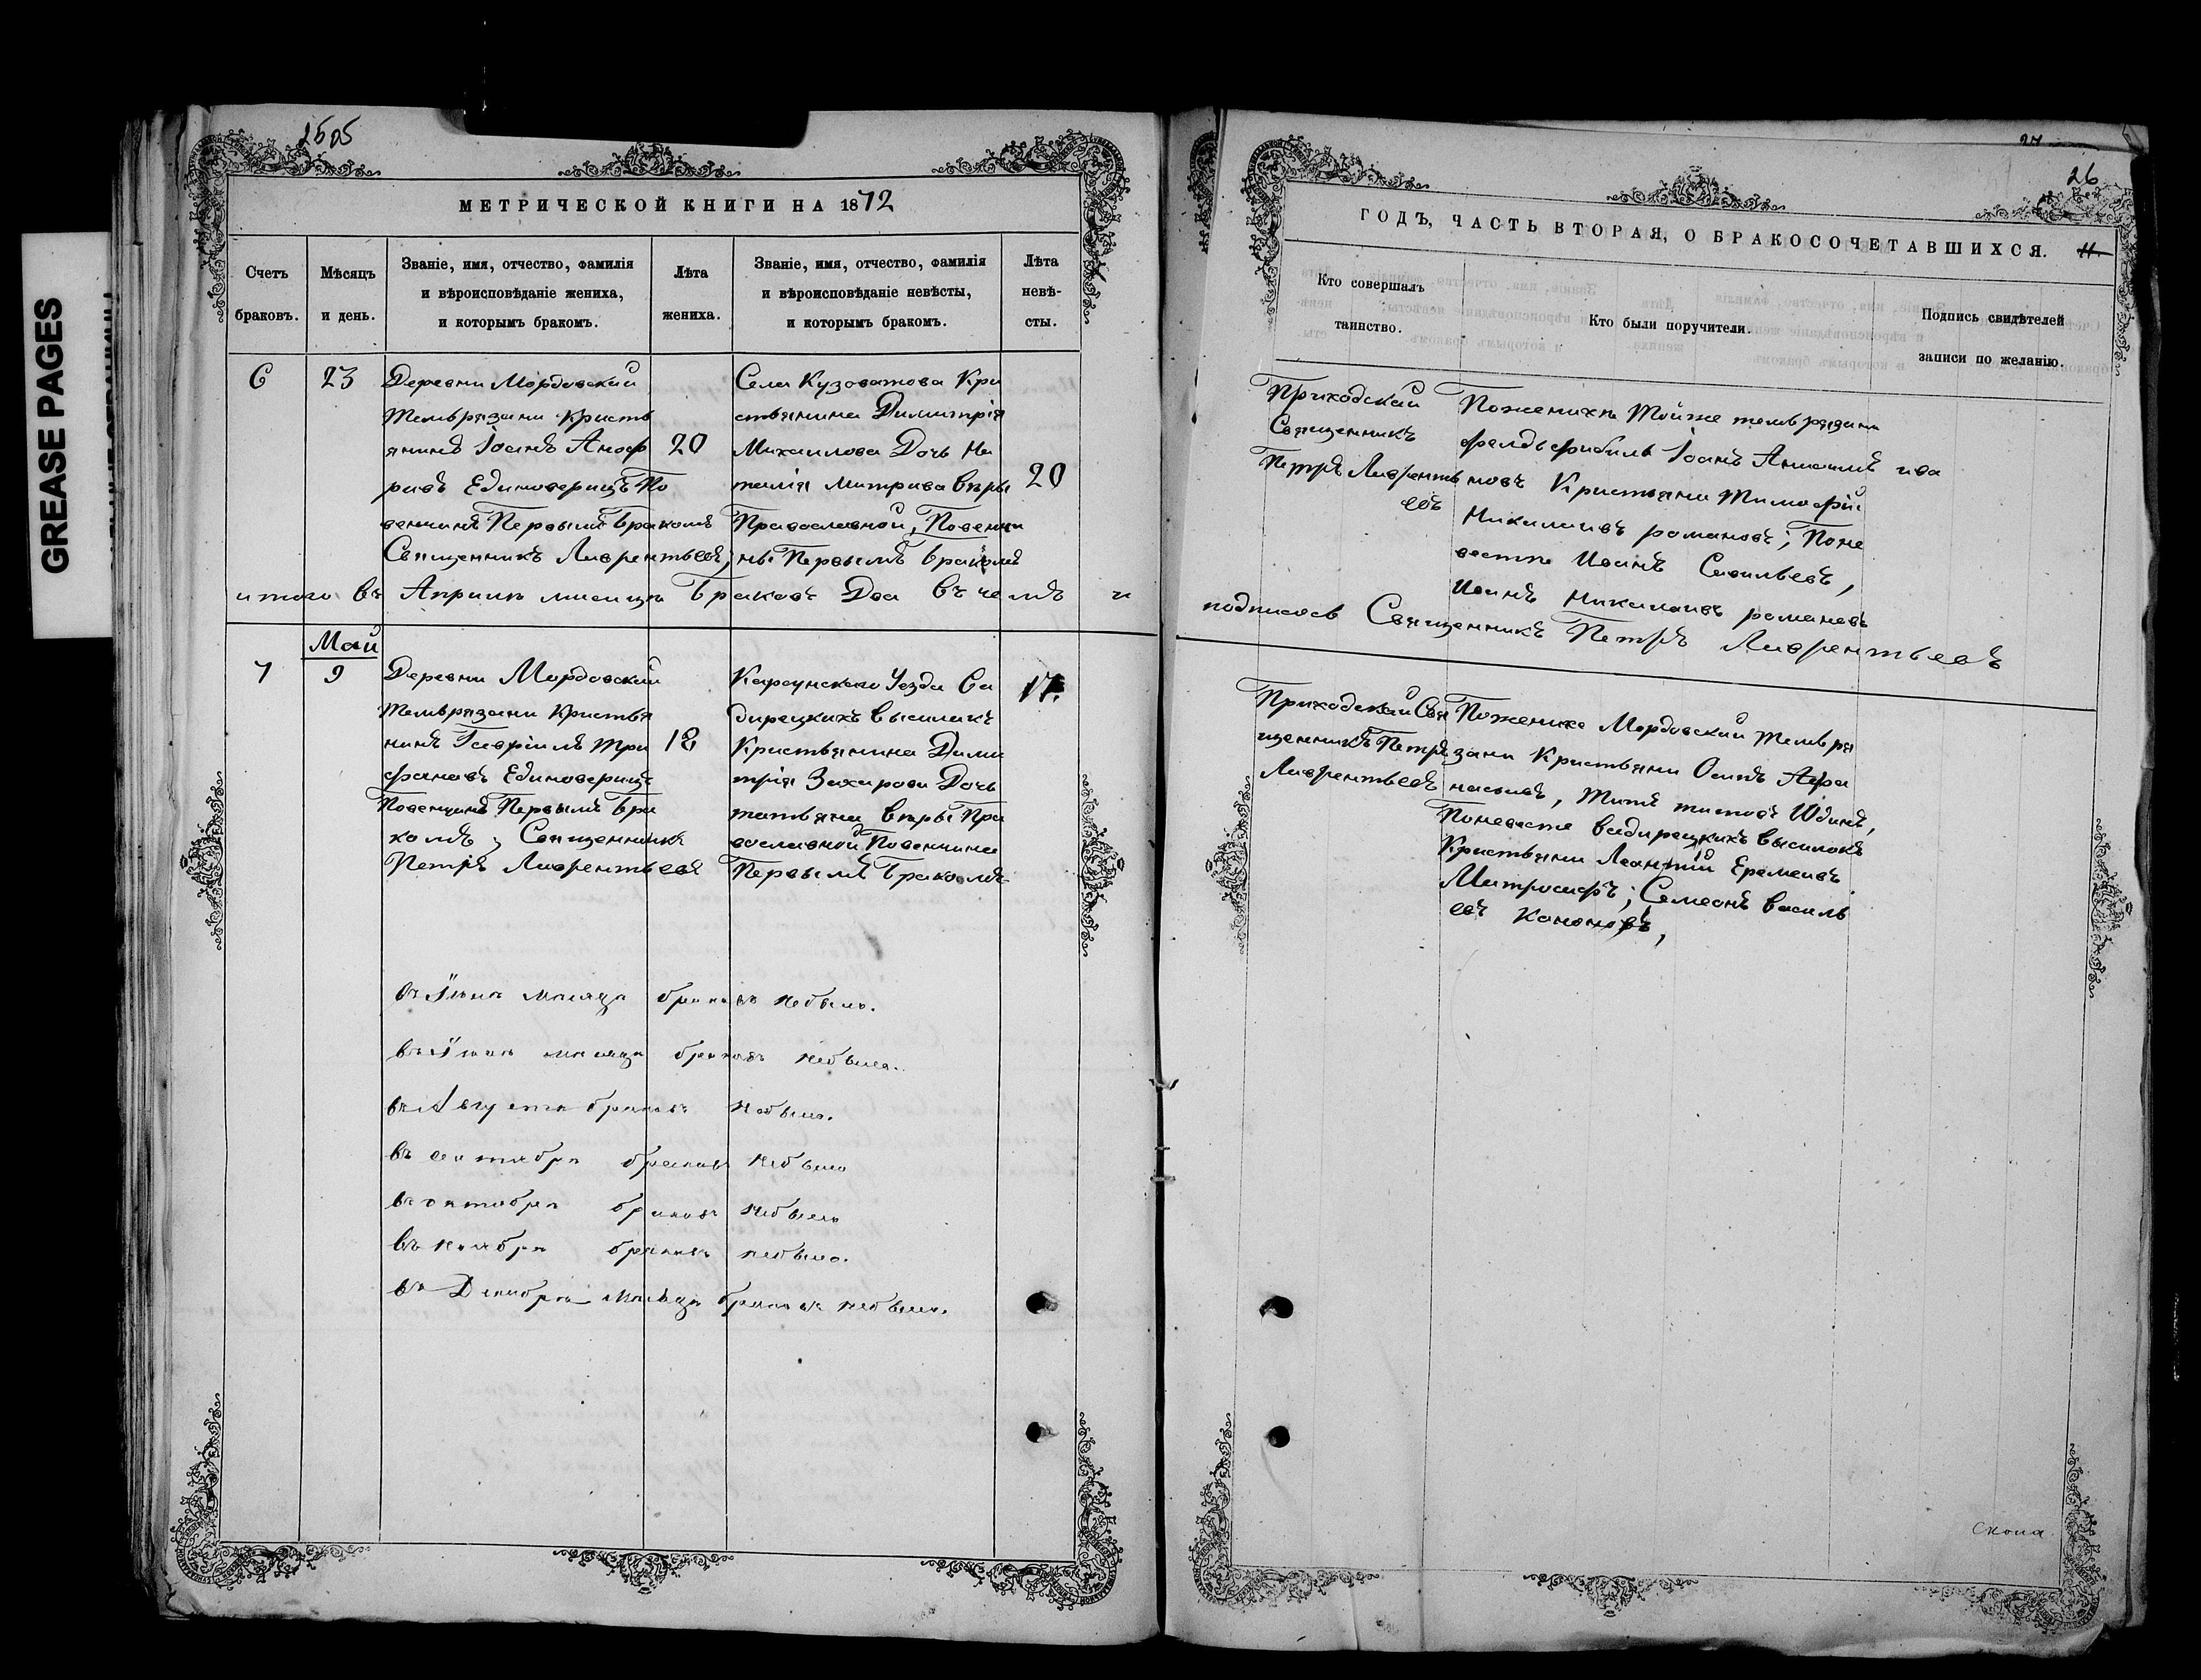 GREASE PAGES
25
МЕТРИЧЕСКОЙ КНИГИ НА 1872
Счетъ браковъ.
Мѣсяцъ и день.
Званіе, имя, отчество, фамилія
и вѣроисповѣданіе жениха,
и которымъ бракомъ.
Лѣта
жениха.
Званіе, имя, отчество, фамилія
и вѣроисповѣданіе невѣсты,
и которымъ бракомъ.
Лѣта
невѣ-
сты.
6
23
Деревни Мордовской
Темврязани Кресть
янинъ Іоанъ Аноф
ревъ Единоверецъ По
венчинъ Первымъ Бракомъ
Священникъ Лаврентьевъ;
20
Села Кузоватова Кре
стьянина Димитрія
Михаилова Дочь На
талія Митрива Веры
Православной, Повенчи
ны Первымъ бракомъ
20
итого въ Апрѣлѣ мисицѣ Браковъ Два Въ чемъ и
Май
7
9
Деревни Мордовской
Темврязани Крестья
нинъ Гавріилъ Три
фановъ Единоверицъ
Повенчинъ Первымъ Бра
комъ; Священникъ
Петръ Лаврентьевъ
18
Карсунскаго Уезда Ва
дирецкихъ Высилакъ
Крестьянина Дими
трія Захарова Дочь
татьяна Веры Пра
вославной Повенчина
Первымъ Бракомъ
17.
въ Іюнѣ мѣсяцѣ браковъ небыло.
въ Іюлѣ мѣсяцѣ браковъ небыло.
въ Августѣ браковъ небыло.
въ сентябрѣ браковъ небыло
въ октябрѣ браковъ небыло
въ ноябрѣ браковъ небыло.
въ Декабрѣ мѣсяцѣ браковъ небыло.
27
26
ГОДЪ, ЧАСТЬ ВТОРАЯ, О БРАКОСОЧЕТАВШИХСЯ.
11
Кто совершалъ
таинство.
Кто были поручители.
Подпись свидѣтелей
записи по желанію.
Приходской
Священникъ
Петръ Лаврентъ
евъ
Поженихѣ Тойже темврязани
Иванъ
новъ Крестьяни Тимофѣй
Николаивъ романовъ; Поне
весте Иванъ Савильевъ,
Иванъ Николаивъ романовъ
подписсъ Священникъ Петръ Лаврентьевъ
Приходской Свя
щенникъ Петръ
Лаврентьевъ
Поженихе Мордовской Темвря
зани Крестьяни Осипъ Афа
насьивъ, Титъ титовъ Юдинъ,
Поневесте Вадирецкихъ высилокъ
Крестьяни Леонтій Еремеивъ
Семеонъ василь
евъ Кононовъ,